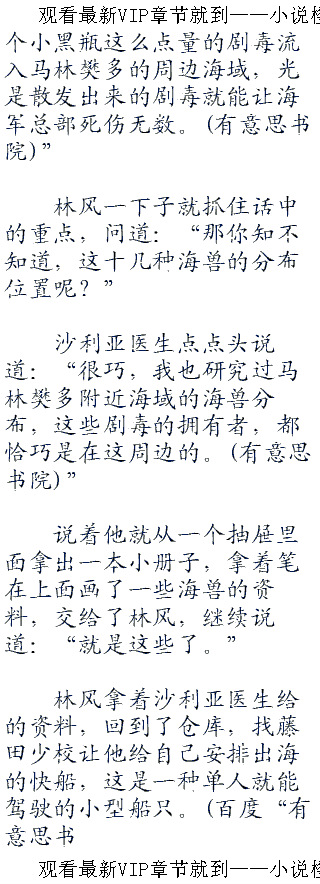 观看最新VIP章节就到——小说检
个小黑瓶这么点量的剧毒流
入马林樊多的周边海域，光
是散发出来的剧毒就能让海
军总部死伤无数。(有意思书
院)”
林风一下子就抓住话中
的重点，问道：“那你知不
知道，这十几种海兽的分布
位置呢？”
沙利亚医生点点头说
道：“很巧，我也研究过马
林樊多附近海域的海兽分
布，这些剧毒的拥有者，都
恰巧是在这周边的。(有意思
书院)”
说着他就从一个抽屉里
面拿出一本小册子，拿着笔
在上面画了一些海兽的资
料，交给了林风，继续说
道：“就是这些了。”
林风拿着沙利亚医生给
的资料，回到了仓库，找藤
田少校让他给自己安排出海
的快船，这是一种单人就能
驾驶的小型船只。(百度“有
意思书
观看最新VIP章节就到——小说检